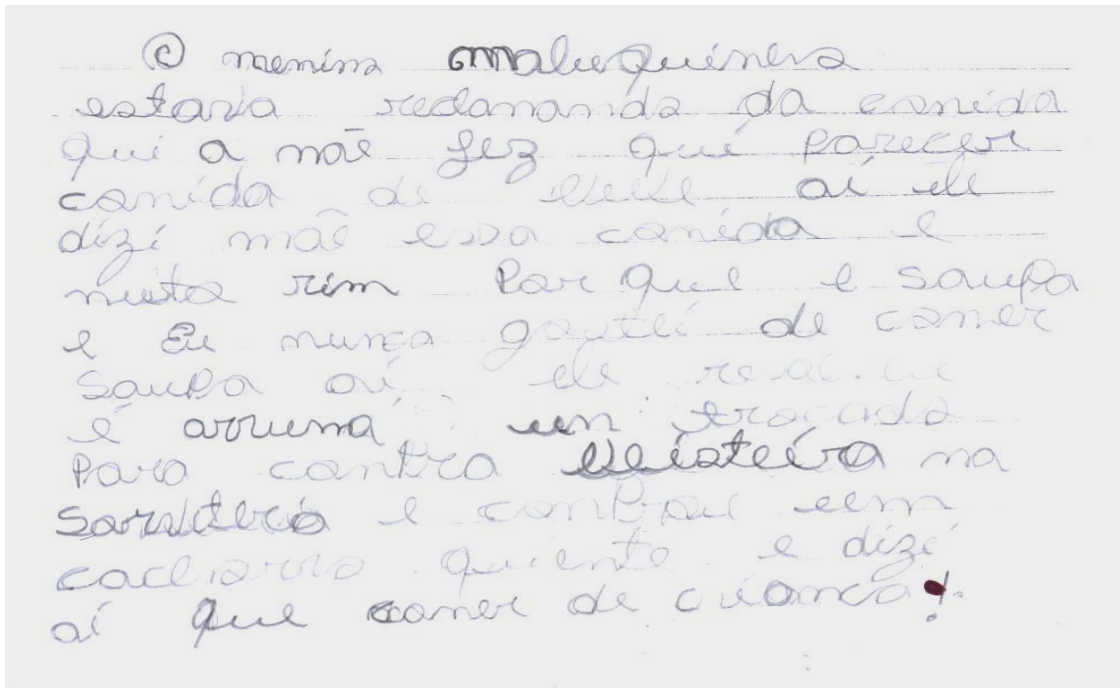 O menino maluquinho
estava reclamando da comida
qui a mãe fez qui parecer
comida de aí ele
dizi mãe essa comida e
muito rim Por que e soupa
e Eu nunca gostei de comer
soupa aí ele
e arruma um trocado
Para contra na
e comprou um
cachorro quente e dizi
aí que comer de criança!